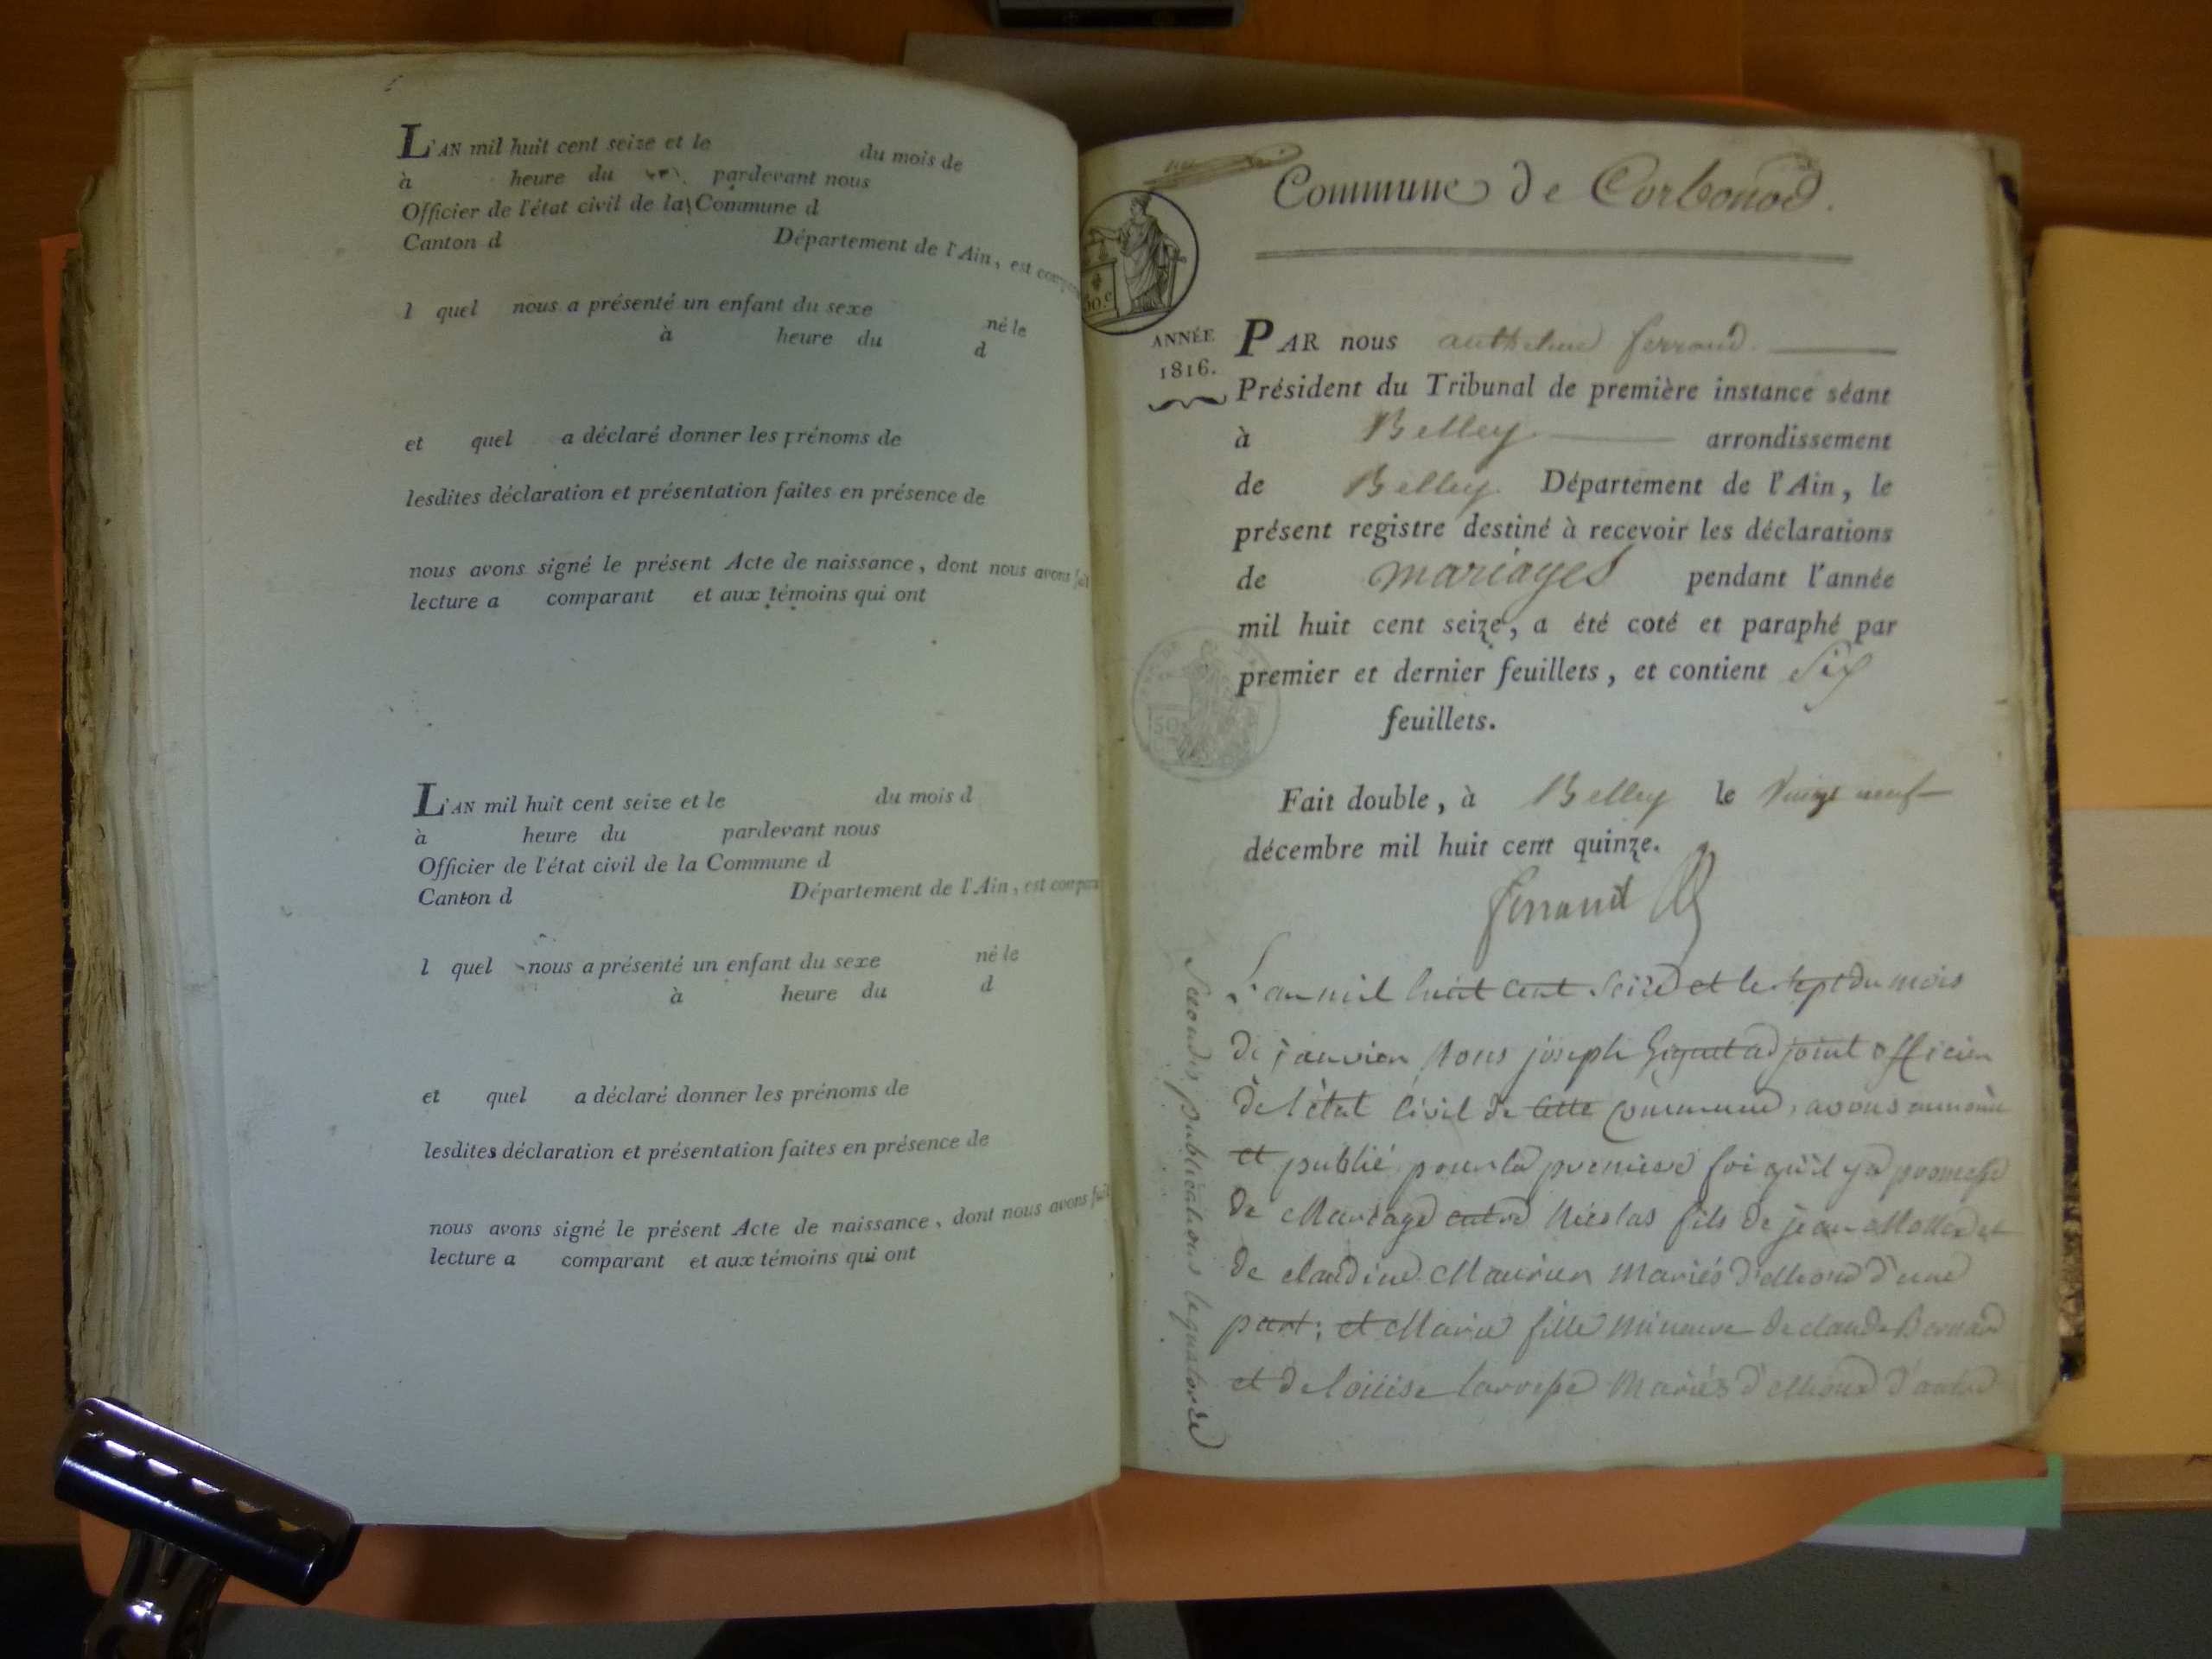 L'AN mil huit cent seize et le du mois de
à heure du pardevant nous
Officier de l'état civil de la Commune d
Canton d Département de l'Ain, est
l quel nous a présenté un enfant du sexe né le
à heure du d
et quel a déclaré donner les prénoms de
lesdites déclaration et présentation faites en présence de
nous avons signé le présent Acte de naissance, dont nous avons fait
lecture a comparant et aux témoins qui ont
L'AN mil huit cent seize et le du mois d
à heure du pardevant nous
Officier de l'état civil de la Commune d
Canton d Département de l'Ain, est
l quel nous a présenté un enfant du sexe né le
à heure du d
et quel a déclaré donner les prénoms de
lesdites déclaration et présentation faites en présence de
nous avons signé le présent Acte de naissance, dont nous avons fait
lecture a comparant et aux témoins qui ont
Commune de Corbonod.
ANNÉE
1816.
PAR nous anthelme ferrand
Président du Tribunal de première instance séant
à Belley arrondissement
de Belley Département de l'Ain, le
présent registre destiné à recevoir les déclarations
de mariages pendant l'année
mil huit cent seize, a été coté et paraphé par
premier et dernier feuillets, et contient Six
feuillets.
Fait double, à Belley le vingt neuf
décembre mil huit cent quinze.
ferrand
L'an mil huit cent Seize et le sept du mois
de janvier Nous joseph Giguet adjoint officier
de l'état Civil de Cette commune, avons annoncé
et publié pour la premiere foi qu'il y a promesse
de Mariage entre Nicolas fils de jean Mollard et
de claudine Maurier mariés d'elhoud d'une
part; et Marie fille mineure de claude Bernard
et de loüise Mariés d'elhoud d'autre
Secondes publications le quatorze